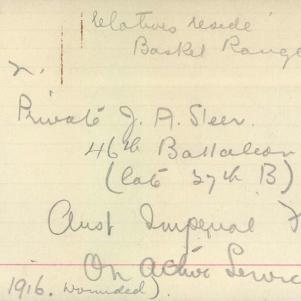 relatives reside
Basket Range
Private J. A. Steer.
46th Battalion
(late 27th B)
Aust Imperial F
On active Servic
1916. wounded).